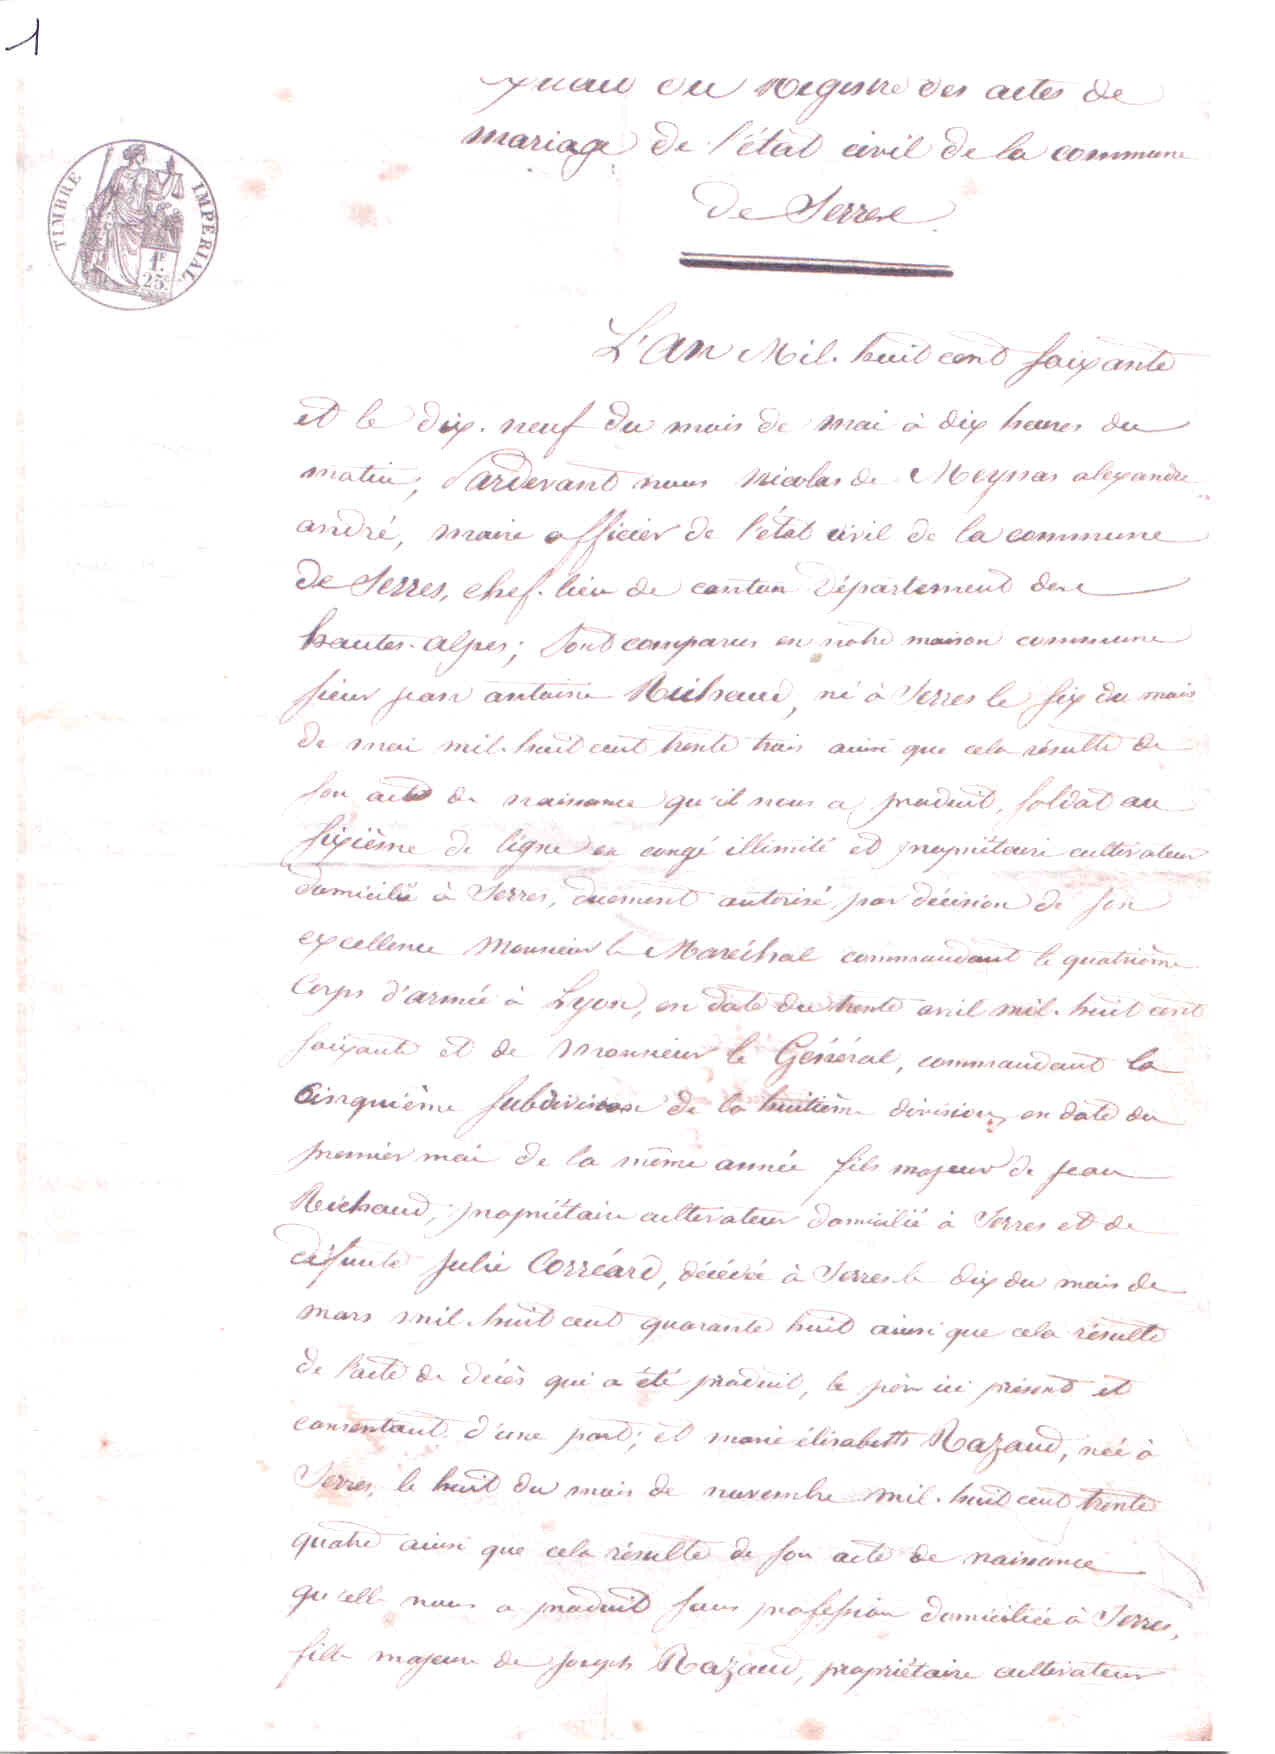 1
Extrait du Registre des actes de
mariage de l'état civil de la commune
de Serres.
TIMBRE IMPERIAL
1F.
25c
L'an Mil. huit cent soixante
et le dix. neuf du mois de mai à dix heures du
matin, Pardevant nous Nicolas de Meynas alexandre
andré, maire officier de l'état civil de la commune
de Serres, chef. lieu de canton Département des
hautes. alpes; Sont comparus en notre maison commune
sieur jean antoine Richaud, né à Serres le six du mois
de mai mil. huit cent trente trois ainsi que cela résulte de
son acte de naissance qu'il nous a produit, soldat au
sixième de ligne en congé illimité et propriétaire cultivateur
domicilié à Serres, duement autorisé par décision de son
excellence Monsieur le Maréchal commandant le quatrième
Corps d'armée à Lyon, en date du trente avril mil. huit cent
soixante et de Monsieur le Général, commandant la
Cinquième subdivision de la huitième division, en date du
premier mai de la même année fils majeur de jean
Richaud, propriétaire cultivateur domicilié à Serres et de
défunte Julie Corréard, décédée à Serres le dix du mois de
mars mil. huit cent quarante huit ainsi que cela résulte
de l'acte de décès qui a été produit, le père ici présent et
consentant d'une part; et marie élisabeth Razaud, née à
Serres, le huit du mois de novembre mil. huit cent trente
quatre ainsi que cela résulte de son acte de naissance
qu'elle nous a produit sans profession domiciliée à Serres,
fille majeure de joseph Razaud, propriétaire cultivateur